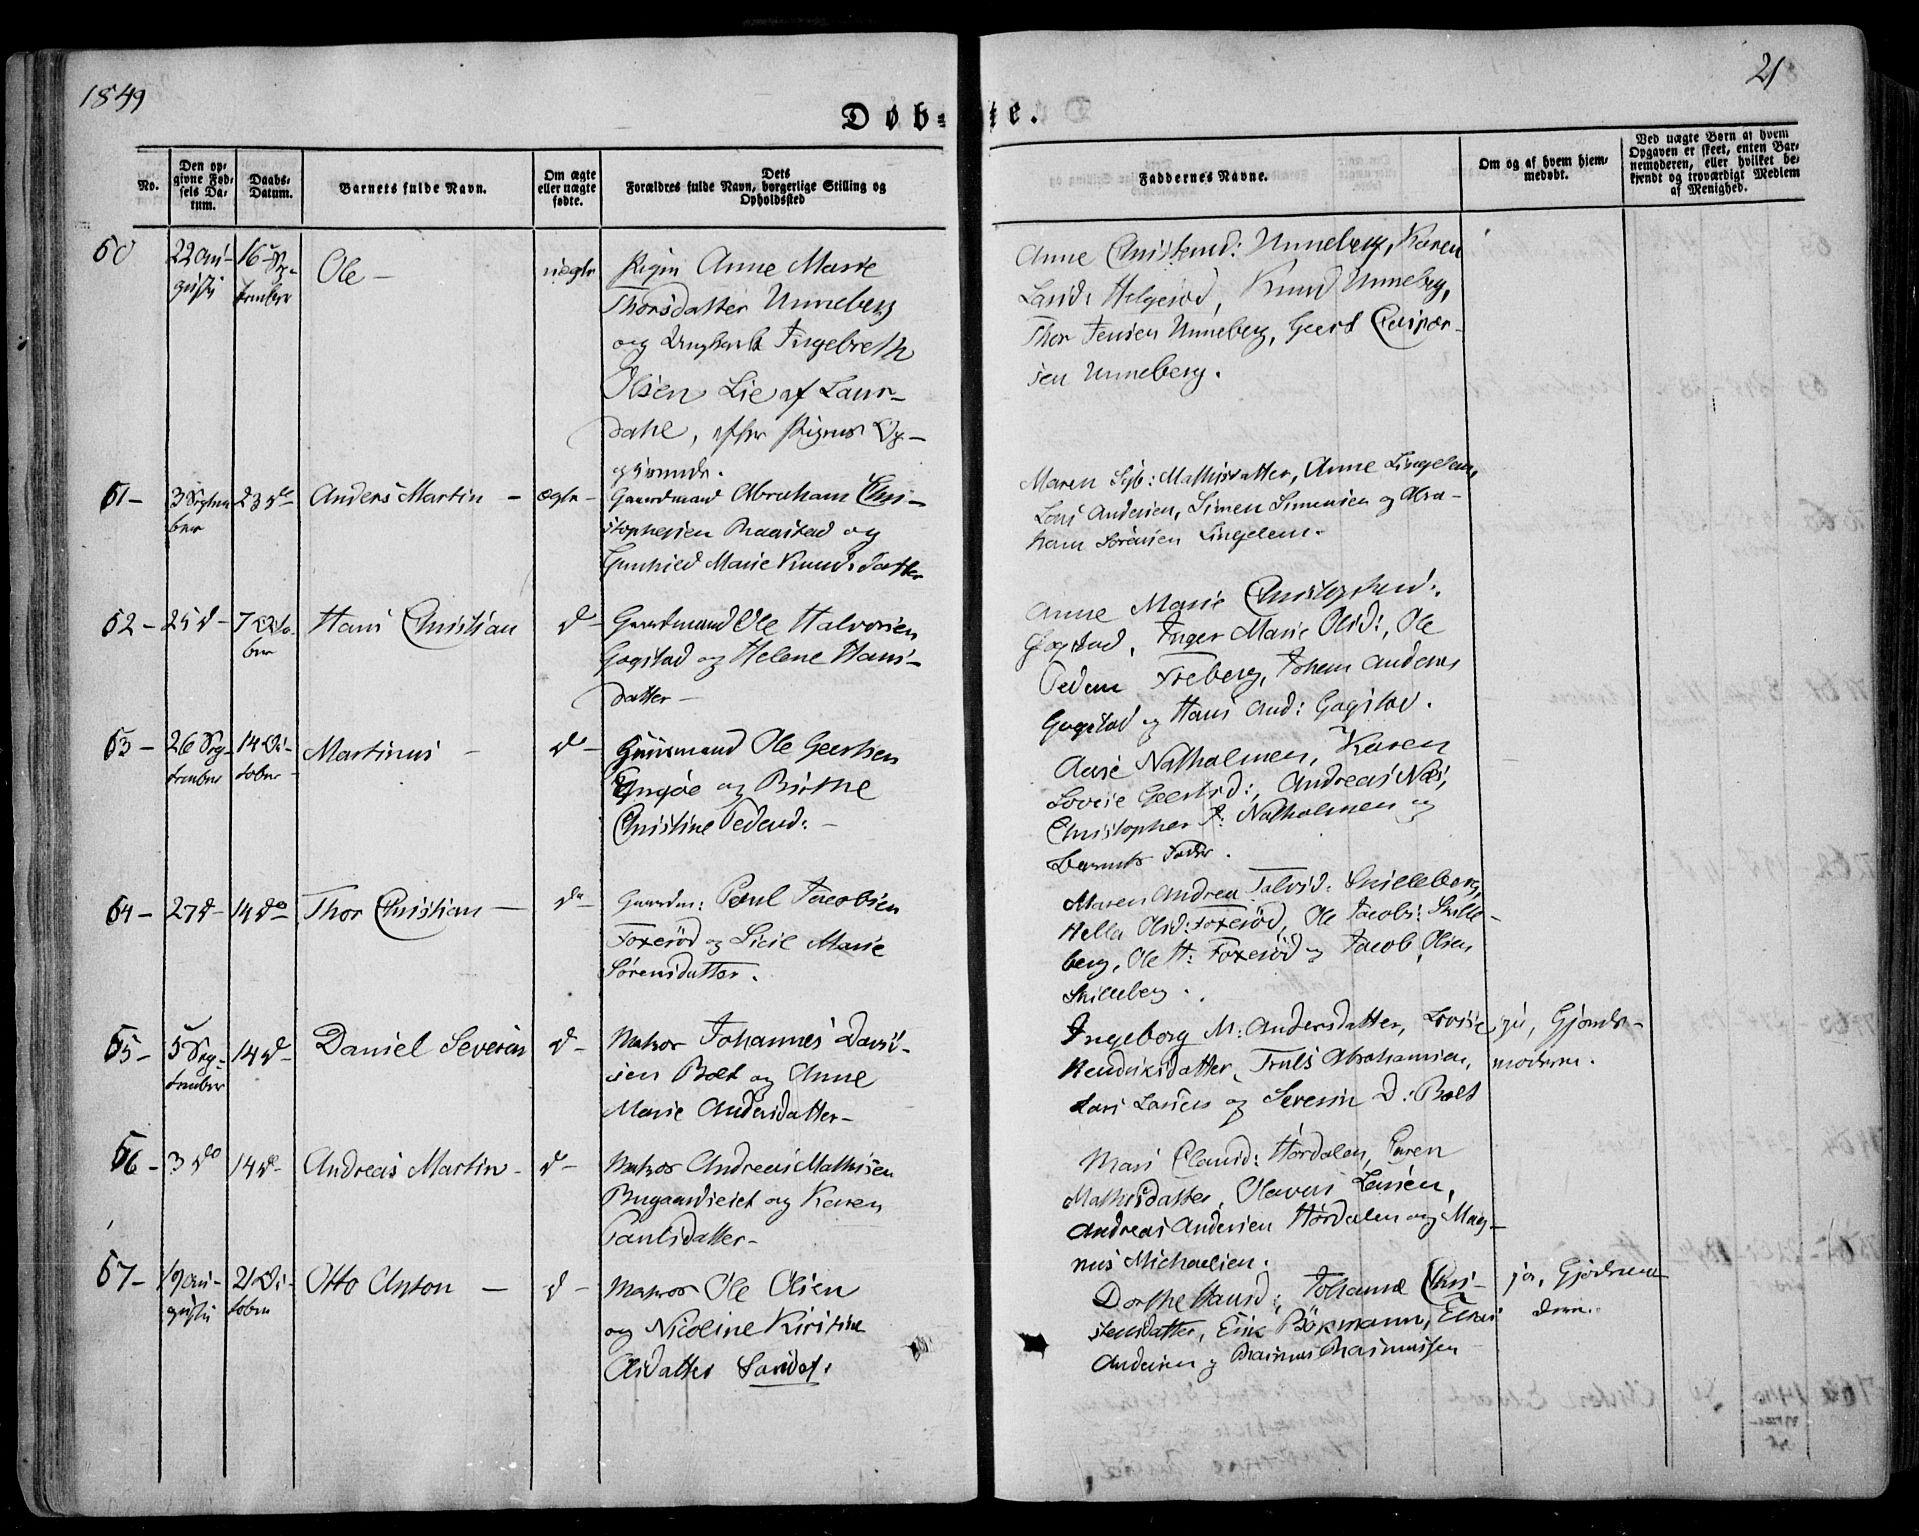 1849
21
Døb-te.
No.
Den op-
givne Fød-
sels Da-
tum.
Daabs-
Datum.
Barnets fulde Navn.
Om ægte
eller uægte
fødte.
Dets
Forældres fulde Navn, borgerlige Stilling og
Opholdssted
Faddernes Navne.
Om og af hvem hjem-
medøbt.
Ved uægte Børn af hvem
Opgaven er skeet, enten Bar-
nemoderen, eller hvilket be-
kjendt og troværdigt Medlem
af Menighed.
50
22 Au-
gusti
16 Sep-
tember
Ole -
uægte
Pigen Anne Marie
Thorsdatter Unneberg
og Ungkarl Ingebreth
Olsen Lie af Laur-
dahl, efter Pigens Op-
givende.
Anne Christensd: Unneberg, Karen
Larsd: Helgerød, Knud Unneberg,
Thor Jensen Unneberg, Geerd Caspær-
sen Unneberg.
51-
3 Septem-
ber
23 do
Anders Martin -
ægte -
Gaardmand Abraham Chri-
stophersen Raastad og
Gunhild Marie Knudsdatter
Maren Sib: Mathisdatter, Anne Lingelem,
Lars Andersen, Simen Simensen og Abra-
ham Sørensen Lingelem.
52-
25 d-
7 Octo-
ber
Hans Christian
d-
Gaardmand Ole Halvorsen
Gogstad og Helene Hans-
datter -
Anne Marie Christophd:
Gogstad, Inger Marie Olsd:, Ole
Peders Freberg, Johan Anders
Gogstad og Hans And: Gogstad.
53-
26 Sep-
tember
14 Oc-
tober
Martinus -
d-
Huusmand Ole Geertsen
Engøe og Birthe
Christine Pedersd: -
Aase Natholmen, Karen
Lovise Geertsd:, Andreas Næs,
Christopher P: Natholmen og
Barnets Fader.
54-
27 d-
14 do
Thor Christian -
do
Gaardm: Poul Jacobsen
Foxerød og Sicil Marie
Sørensdatter.
Maren Andrea Talvsd: Skilleberg,
Hella Olsd: Foxerød, Ole Jacobs: Skille-
berg, Ole H: Foxerød og Jacob Olsen
Skilleberg.
55-
5 Sep-
tember
14 d-
Daniel Severin
d-
Matros Johannes David-
sen Bolt og Anne
Marie Andersdatter-
Ingeborg M: Andersdatter, Lovise
Hendriksdatter, Truls Abrahamsen,
Lars Larsen og Severin D: Bolt
ja, Gjords-
moderen.
56-
3 do
14 do-
Andreas Martin-
d-
Matros Andreas Mathisen
Bugaardseiet og Karen
Paulsdatter-
Mari Clausd: Hørdalen, Karen
Mathisdatter, Olaves Larsen,
Andreas Andersen Hørdalen og Mag-
nus Michaelsen.
57-
19 Au-
gusti
21 Oc-
tober
Otto Anton -
d-
Matros Ole Olsen
og Nicoline Kirstine
Olsdatter Sandef:
Dorthe Hansd:, Johanne Chri-
stensdatter, Erik Bökmann, Elias
Andersen og Rasmus Rasmussen
ja, Gjordmo-
deren.